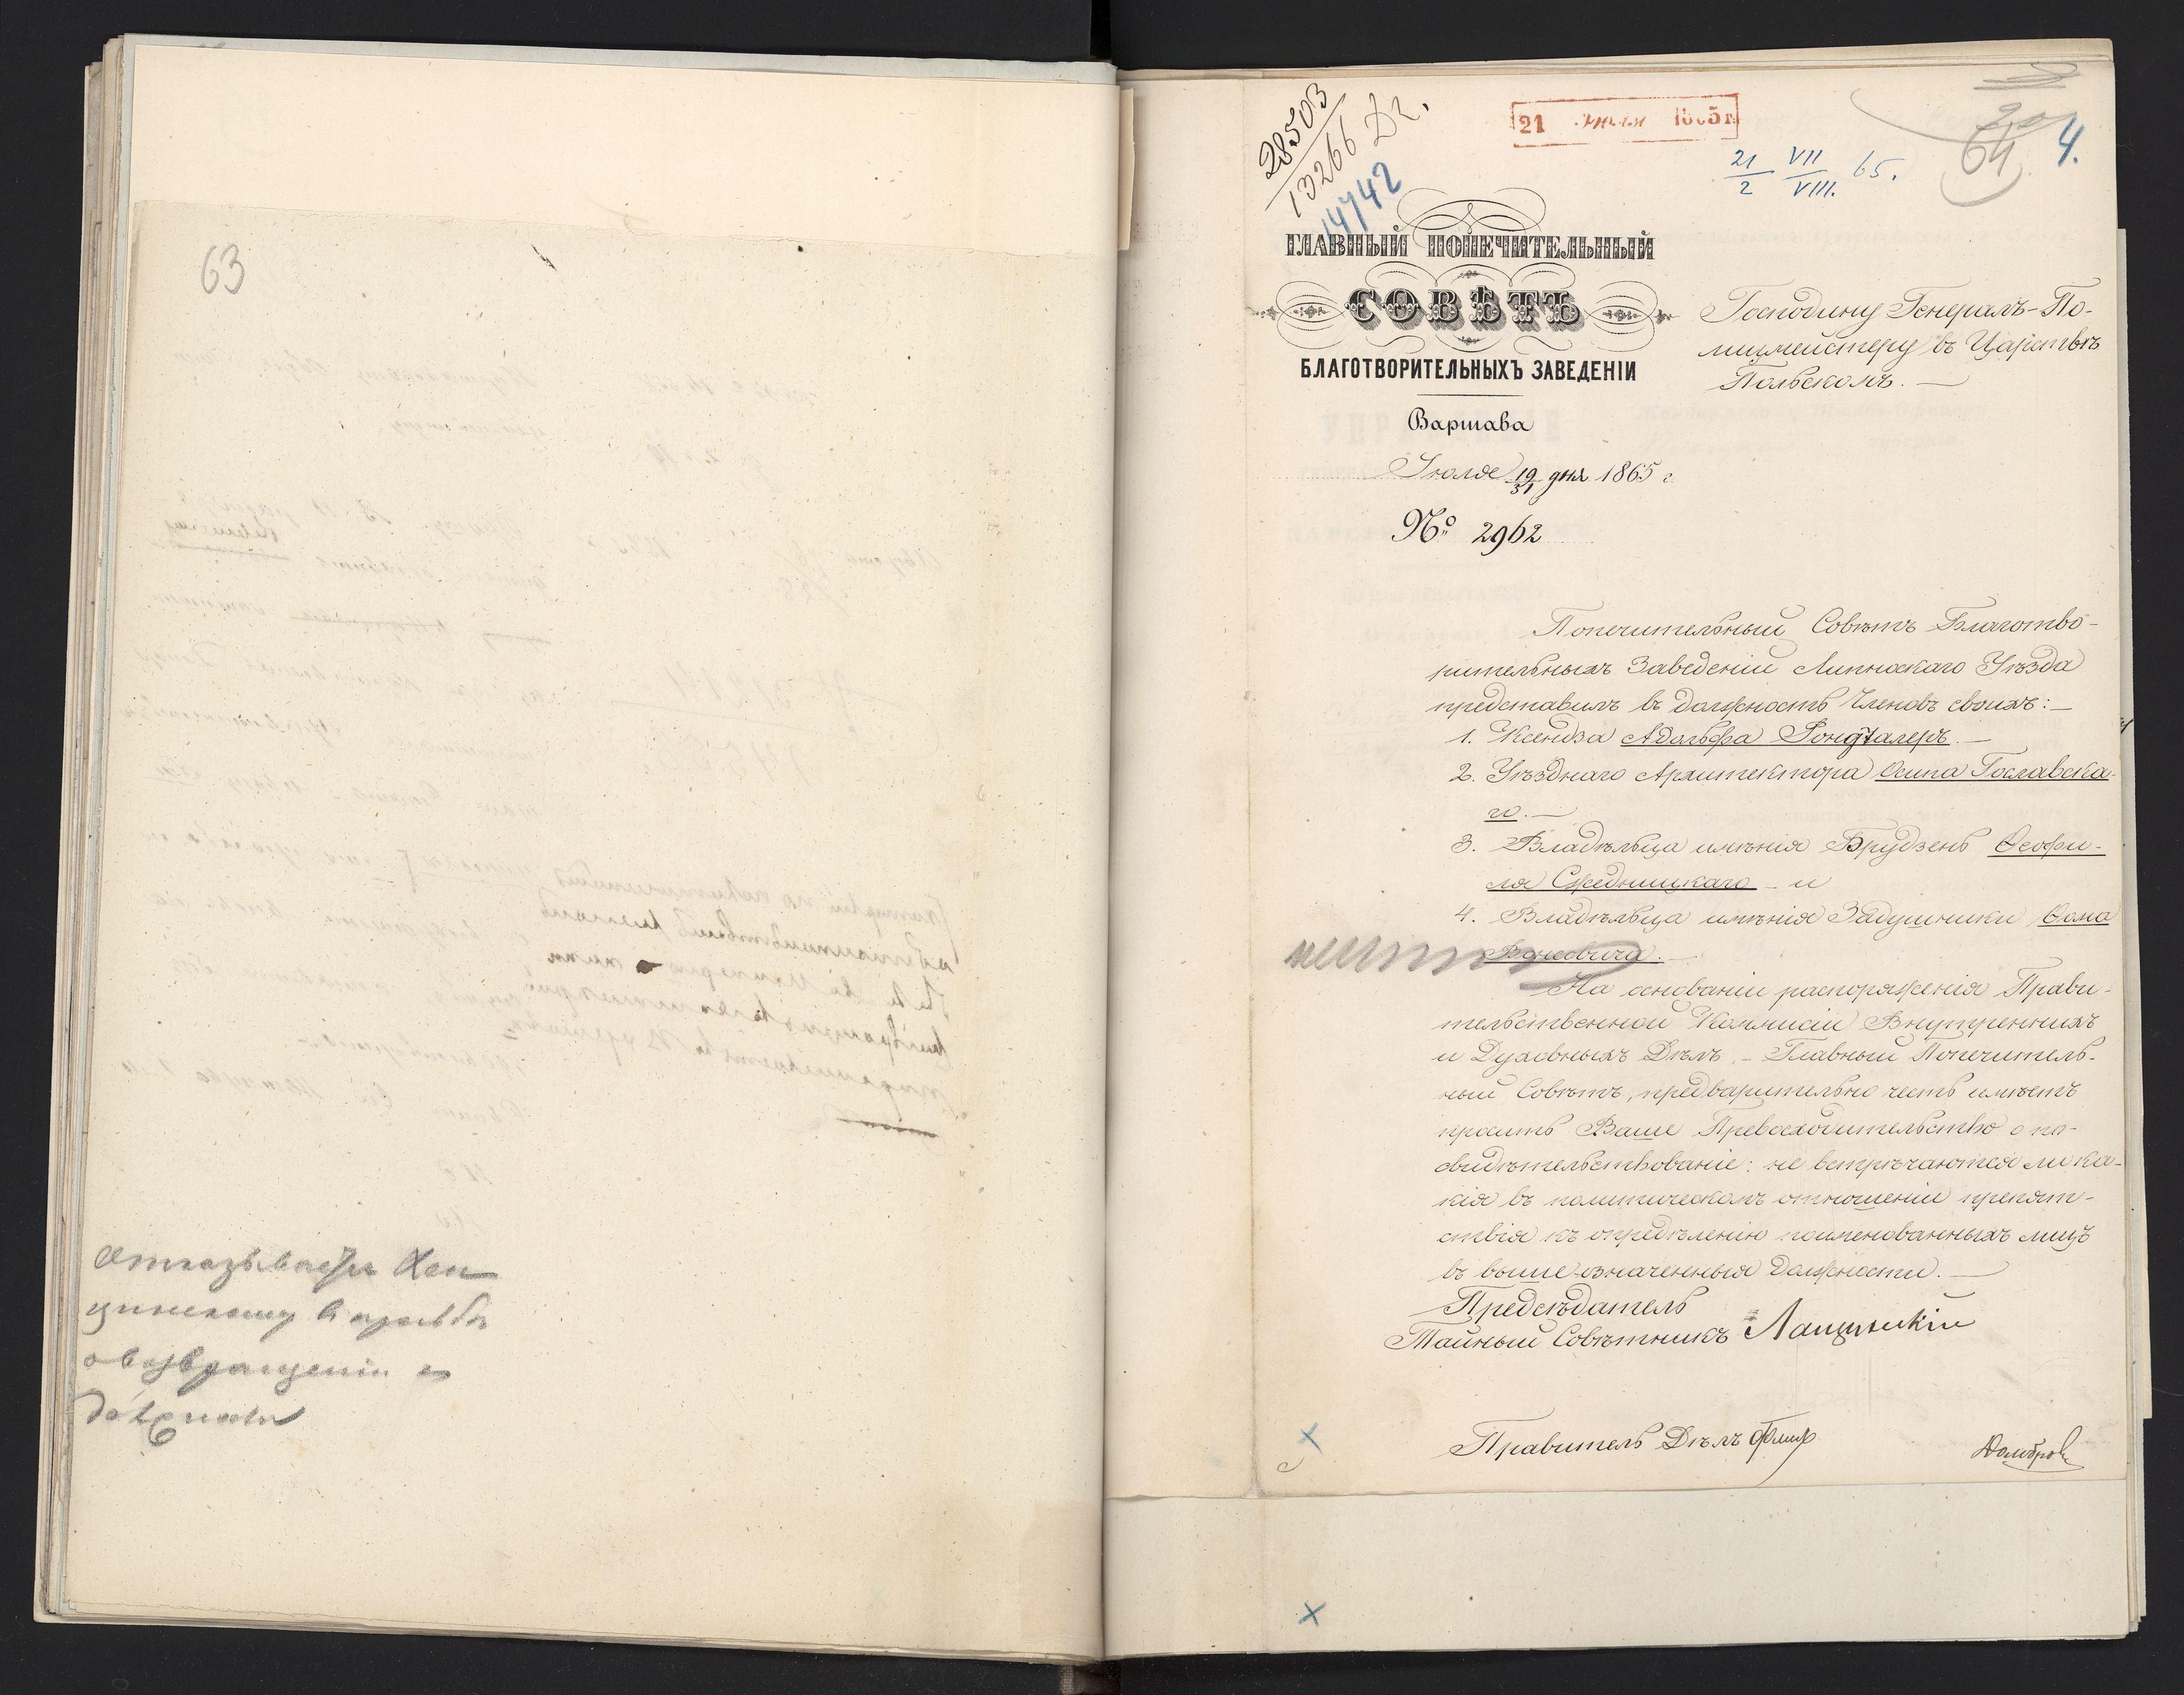 63
28503
13266 Дг.
14742
21 Июля 1865 г.
21/2 VII/VIII. 65.
64
4.
ГЛАВНЫЙ ПОПЕЧИТЕЛЬНЫЙ
СОВѢТЪ
БЛАГОТВОРИТЕЛЬНЫХЪ ЗАВЕДЕНІИ
Варшава
Іюля 19/31 дня 1865 г.
№ 2962
Господину Генералъ-По-
лицмейстеру въ Царствѣ
Польскомъ. —
Попечительный Совѣтъ Благотво-
рительныхъ Заведеній Липновскаго Уѣзда
представилъ въ должность Членовъ своихъ: —
1. Ксендза Адольфа Рондталеръ. —
2. Уѣзднаго Архитектора Осипа Гославска-
го. —
3. Владѣльца имѣнія Брудзень Ѳеофи-
ля Средницкаго — и
4. Владѣльца имѣнія Задушники Ѳома
На основаніи распоряженія Прави-
тельственной Коммисіи Внутреннихъ
и Духовныхъ Дѣлъ, — Главный Попечитель-
ный Совѣтъ, предварительно честь имѣетъ
просить Ваше Превосходительство о по-
свидѣтельствованіе: не встрѣчаются ли ка-
кія въ политическомъ отношеніи препят-
ствія къ опредѣленію поименованныхъ лицъ
въ выше-означенныя должности. —
Предсѣдатель
Тайный Совѣтникъ Лащинскій
Правитель Дѣлъ
о возвращеніи